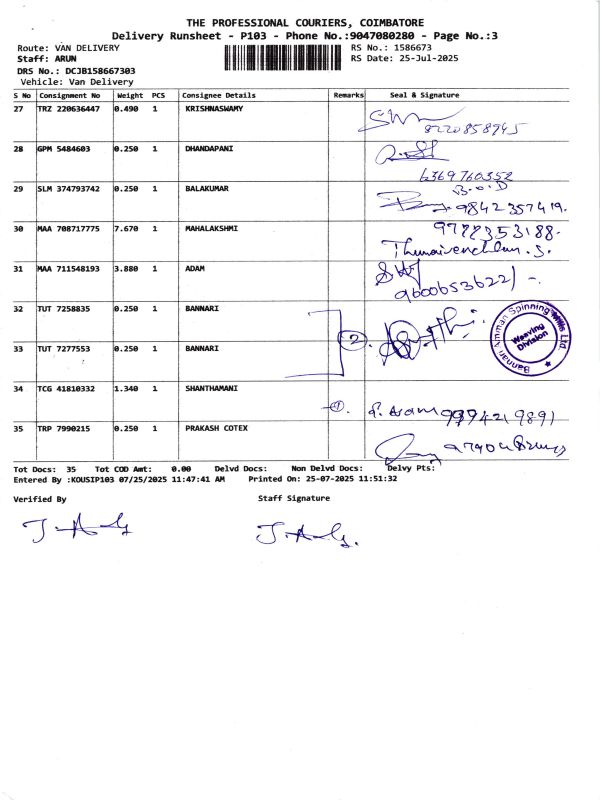 THE PROFESSIONAL COURIERS, COIMBATORE
Delivery Runsheet - P103 - Phone No.:9047080280 - Page No.:3
Route: VAN DELIVERY RS No.: 1586673
Staff: ARUN RS Date: 25-Jul-2025
DRS No.: DCJB158667303
Vehicle: Van Delivery
S No Consignment No Weight PCS Consignee Details Remarks Seal & Signature
27 TRZ 220636447 0.490 1 KRISHNASWAMY
8220858945
28 GPM 5484603 0.250 1 DHANDAPANI
6369760352
29 SLM 374793742 0.250 1 BALAKUMAR
B.O.D
9842357419.
30 MAA 708717775 7.670 1 MAHALAKSHMI
31 MAA 711548193 3.880 1 ADAM
9600653622/-
32 TUT 7258835 0.250 1 BANNARI
2.
Bannari Amman Spinning Mills Ltd
Weaving
Division
33 TUT 7277553 0.250 1 BANNARI
34 TCG 41810332 1.340 1 SHANTHAMANI
9994219891
35 TRP 7990215 0.250 1 PRAKASH COTEX
Tot Docs: 35 Tot COD Amt: 0.00 Delvd Docs: Non Delvd Docs: Delvy Pts:
Entered By :KOUSIP103 07/25/2025 11:47:41 AM Printed On: 25-07-2025 11:51:32
Verified By Staff Signature